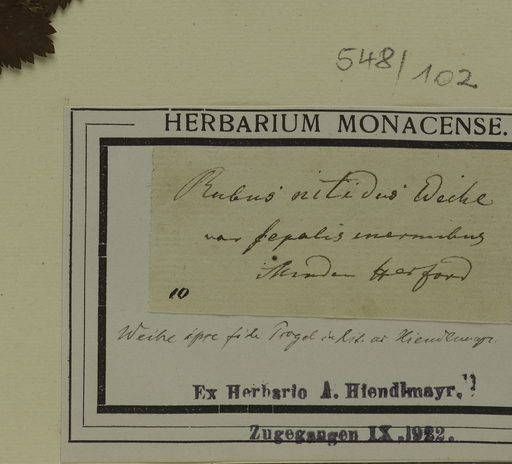 548/102
HERBARIUM MONACENSE.
Rubus nitidus Weihe
var sepalis inermibus
Minden Herford
10
Weihe ipse fide Progel in Hiendlmayr.
Ex Herbario A. Hiendlmayr.
Zugegangen IX.1922.